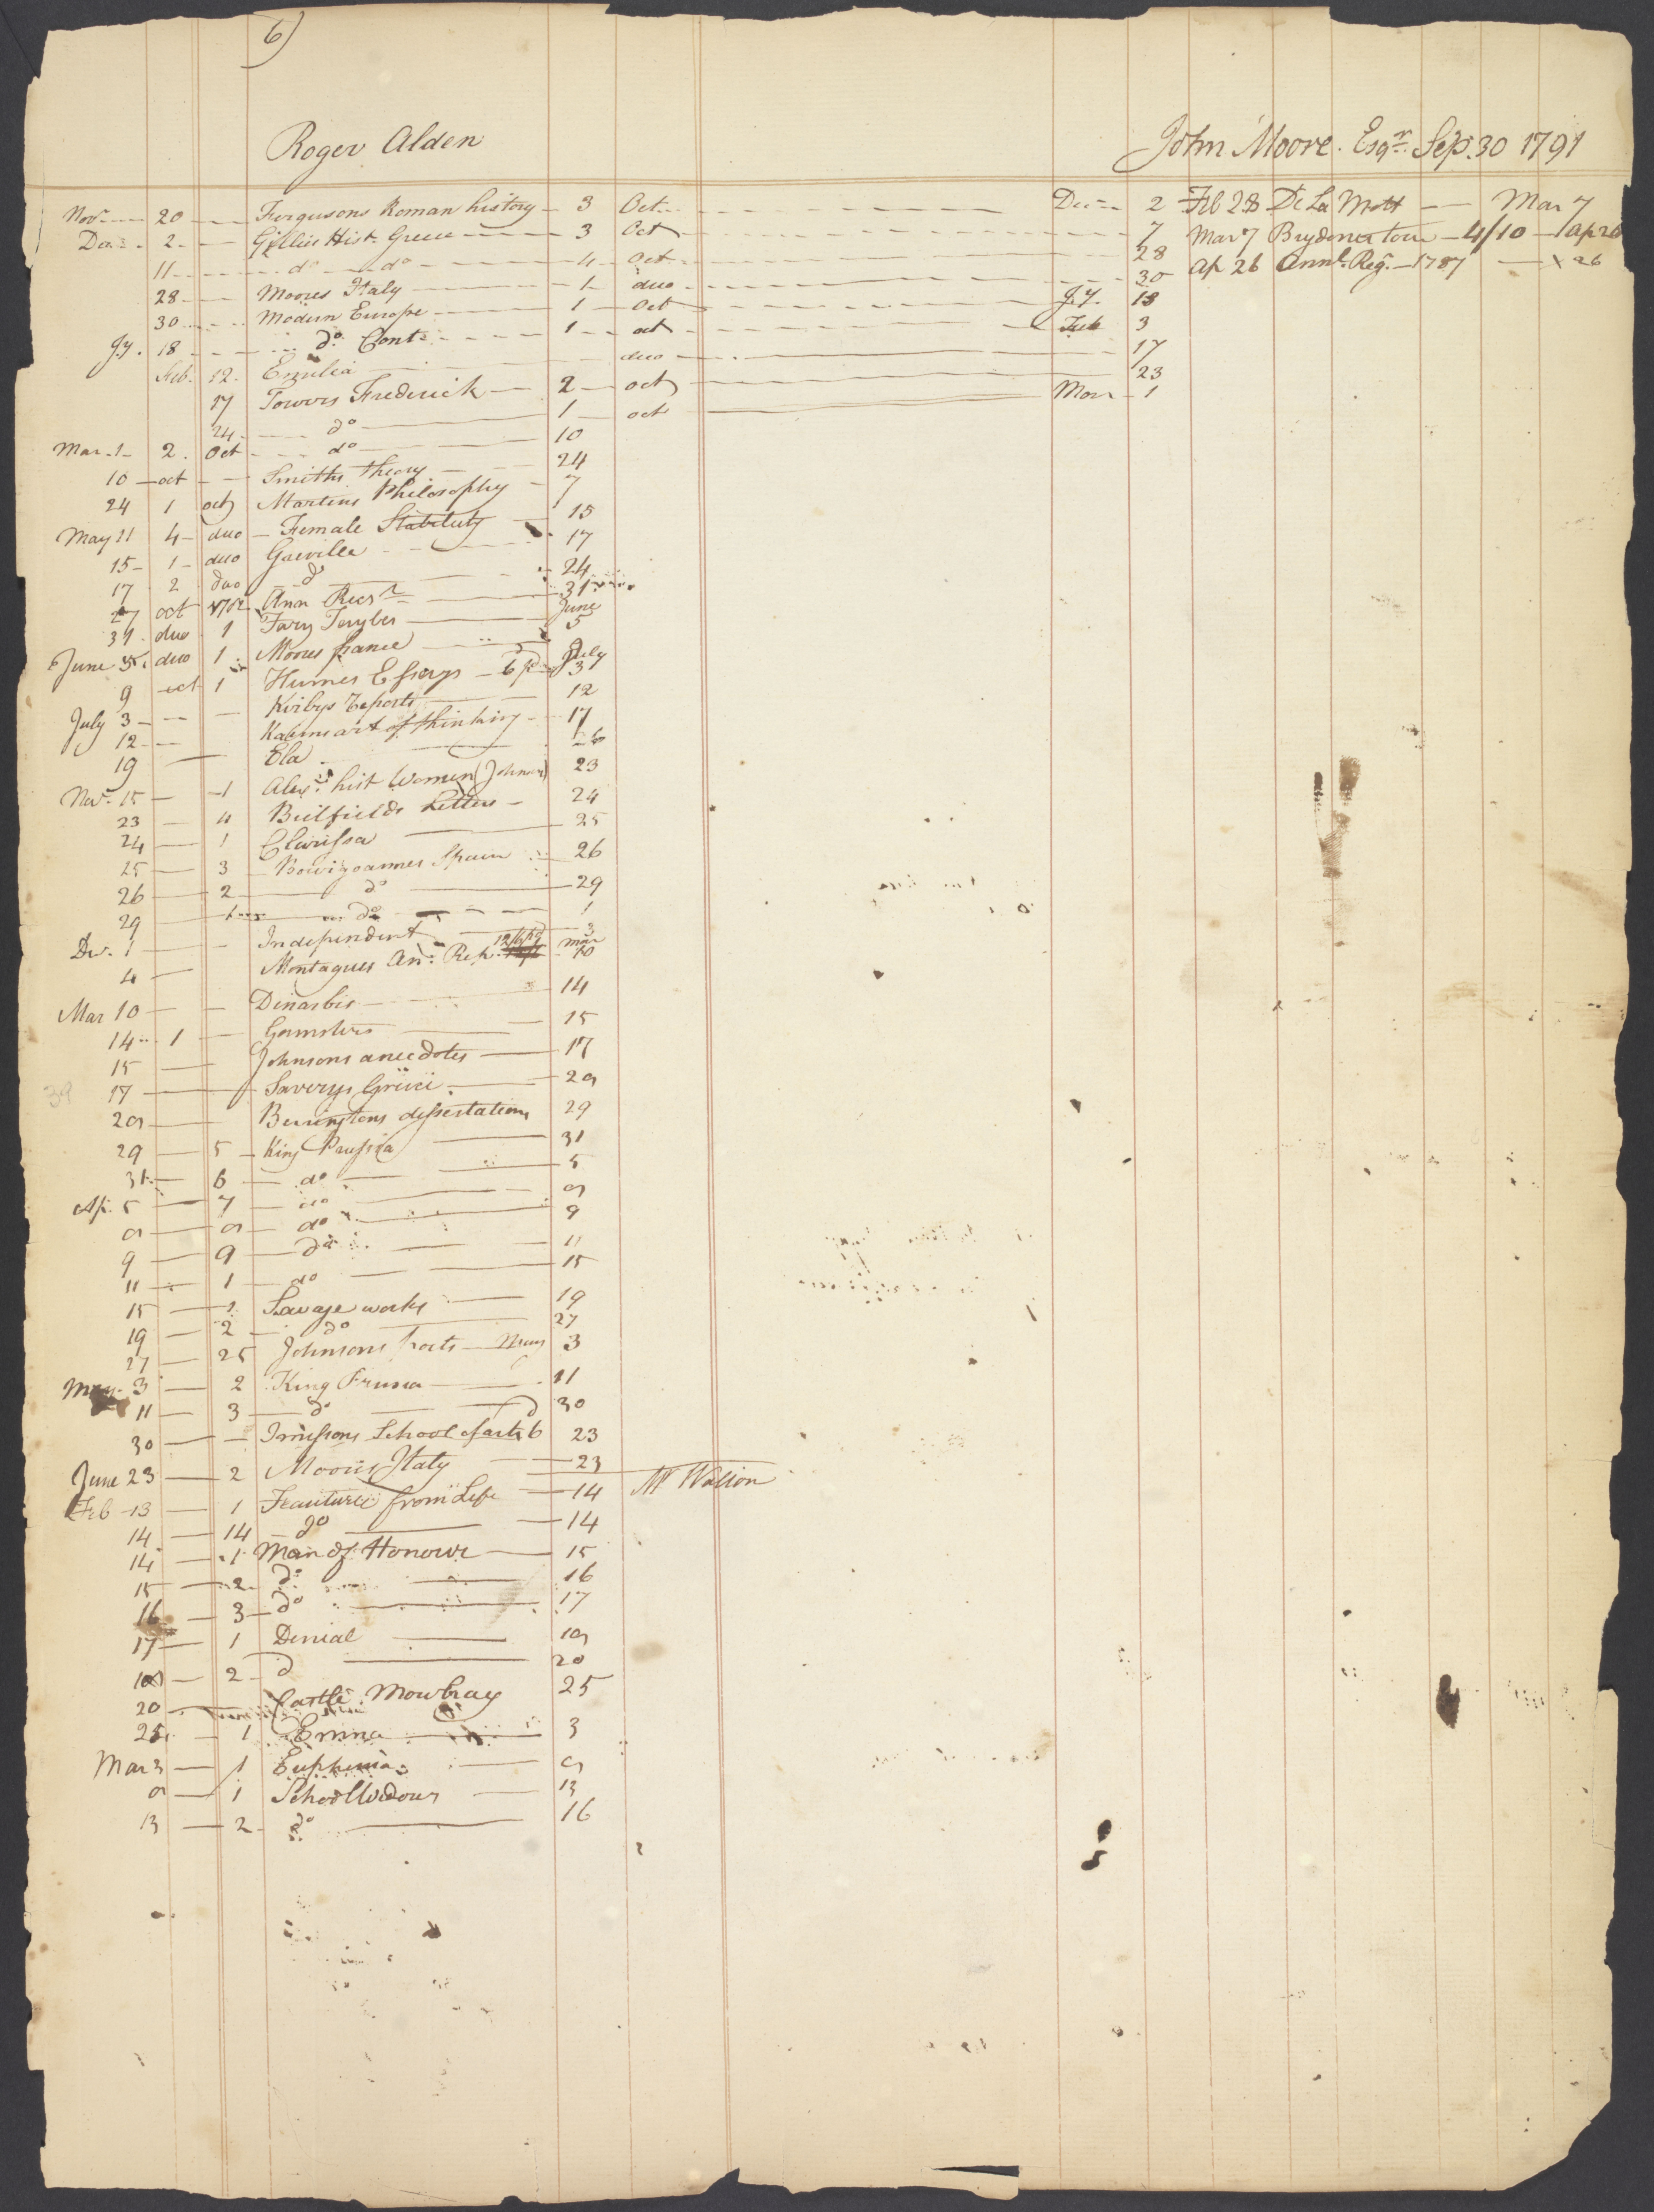 6)
Roger Alden
John Moore. Esqr. Sep. 30 1791
Nov. 20 Fergusons Roman history 3 Oct. Dec 2
De. 2 Gillies Hist. Greece 3 Oct 7
11 do do 4 Oct 28
28 Moores Italy 1 duo 30
30 Modern Europe 1 Oct Jy. 18
Jy. 18 do Cont. 1 oct Feb 3
Feb. 12. Emilia duo 17
17 Towers Frederick 2 oct 23
24 do 1 oct Mar 1
Mar. 1 2. Oct do 10
10 oct Smiths theory 24
24 1 oct Martins Philosophy 7
May 11 4 duo Female Stability 15
15 1 duo 17
17 2 duo do 24
27 oct Ann Regr 31
31 duo 1 June 5
June 5. duo 1 Moores france July
9 oct 1 Humes Essays 3
July 3 Kirbys Reports 12
12 Kaims art of thinking 17
19 Ela
Nov. 15 1 Alexr. hist Women (Johnson) 23
23 4 Bielfields Letters 24
24 1 Clarissa 25
25 3 Spain 26
26 2 do 29
29 1 do 1
De. 1 Independent 3
4 Montagues An. Rep. Mar 10
Mar 10 Dinarbis 14
14 1 Gamsters 15
15 Johnsons anecdotes 17
17 Saverys Greice 20
20 Berringtons dissertations 29
29 5 King Prussia 31
31 6 do 5
Ap. 5 7 do 8
8 8 do 9
9 9 do 11
11 1 do 15
15 1 Savage works 19
19 2 do 27
27 25 Johnsons Poets May 3
May 3 2 King Prussia 11
11 3 do 30
30 School of arts 6 23
June 23 2 Moores Italy 23
Feb 13 1 from Life 14 Mr
14 14 do 14
14 1 Man of Honour 15
15 2 do 16
16 3 do 17
17 1 Denial 18
18 2 d 20
20 Castle Mowbray 25
25 1 Emma 3
Mar 3 1 Euphemia 8
8 1 School Widows 13
13 2 do 16
Feb 28 De La Mott Mar 7
Mar 7 Brydones tour 4/10 Ap 26
Ap 26 Annl. Reg. 1787 26